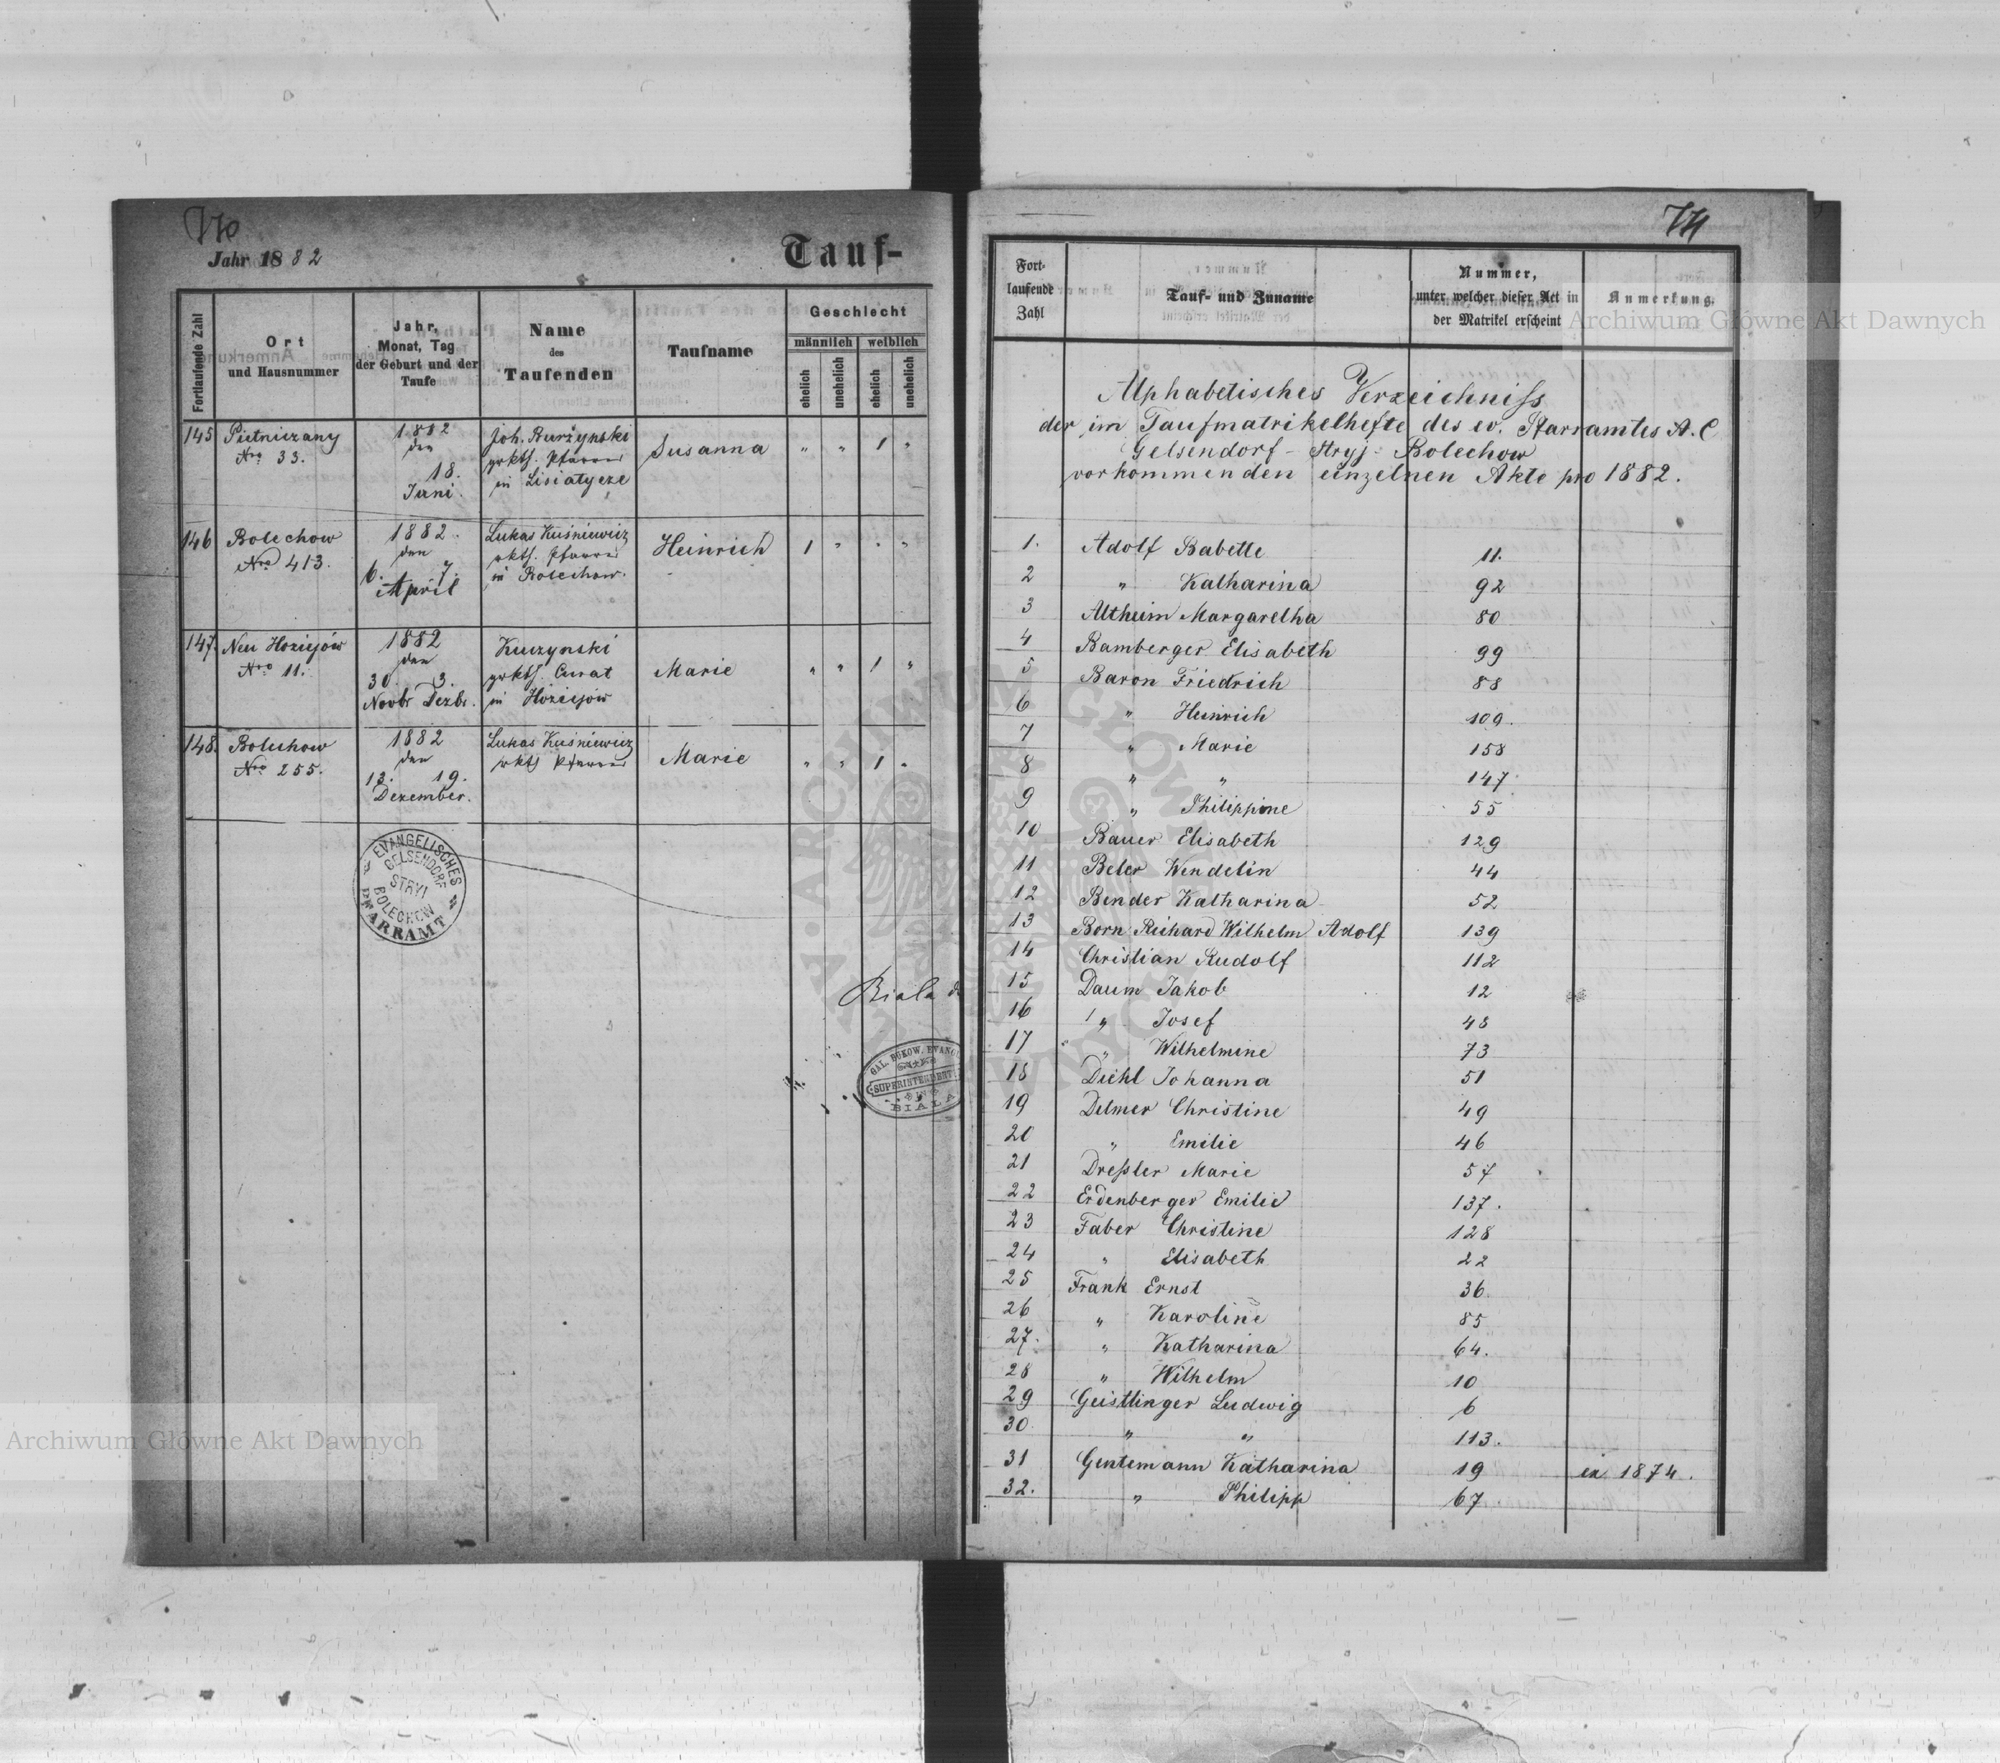 Jahr 1882
Tauf-
Fortlaufende Zahl
Ort
und Hausnummer
Jahr,
Monat, Tag
der Geburt und der
Taufe
Name
des
Taufenden
Taufname
Geschlecht
männlich weiblich
ehelich unehelich ehelich unehelich
145 Pietniczany
Nro 33.
1882
den
18.
Juni.
Joh. Burżynski
grkth. Pfarrer
in Lisiatycze
Susanna
" " 1 "
146 Bolechow
Nro 413.
1882.
den
6. 7.
April
Lukas Kuśniewicz
rkth. Pfarrer
in Bolechow.
Heinrich
1 " " "
147. Neu Hoziejów
Nro 11.
1882
den
30. 3.
Novbr Dezbr.
grkth. Curat
in Hoziejów
Marie
" " 1 "
148. Bolechow
Nro 255.
1882
den
13. 19.
Dezember.
Lukas Kuśniewicz
rkth Pfarrer
Marie
" " 1 "
EVANGELISCHES
GELSENDORF
STRYI
BOLECHOW
PFARRAMT
Biala
GAL. BUKOW. EVANG.
SUPERINTENDENT
BIALA
Fort-
laufende
Zahl
Tauf- und Zuname
Nummer,
unter welcher dieser Act in
der Matrikel erscheint
Anmerkung.
Alphabetisches Verzeichniss
der im Taufmatrikelhefte des ev. Pfarramtes A.C
Gelsendorf - Stryj - Bolechow
vorkommenden einzelnen Akte pro 1882.
1. Adolf Babette 11.
2 " Katharina 92
3 Altheim Margaretha 80
4 Bamberger Elisabeth 99
5 Baron Friedrich 88
6 " Heinrich 109.
7 " Marie 158
8 " " 147.
9 " Philippine 55
10 Bauer Elisabeth 129
11 Beler Wendelin 44
12 Bender Katharina 52
13 Born Richard Wilhelm Adolf 139
14 Christian Rudolf 112
15 Daum Jakob 12
16 " Josef 48
17 " Wilhelmine 73
18 Diehl Johanna 51
19 Delmer Christine 49
20 " Emilie 46
21 Dreßler Marie 57
22 Erdenberger Emilie 137.
23 Faber Christine 128
24 " Elisabeth 22
25 Frank Ernst 36
26 " Karoline 85
27. " Katharina 64.
28 " Wilhelm 10
29 Geistlinger Ludwig 6
30. " " 113.
31 Gentemann Katharina 19 ex 1874.
32. " Philipp 67
Archiwum Główne Akt Dawnych
Archiwum Główne Akt Dawnych